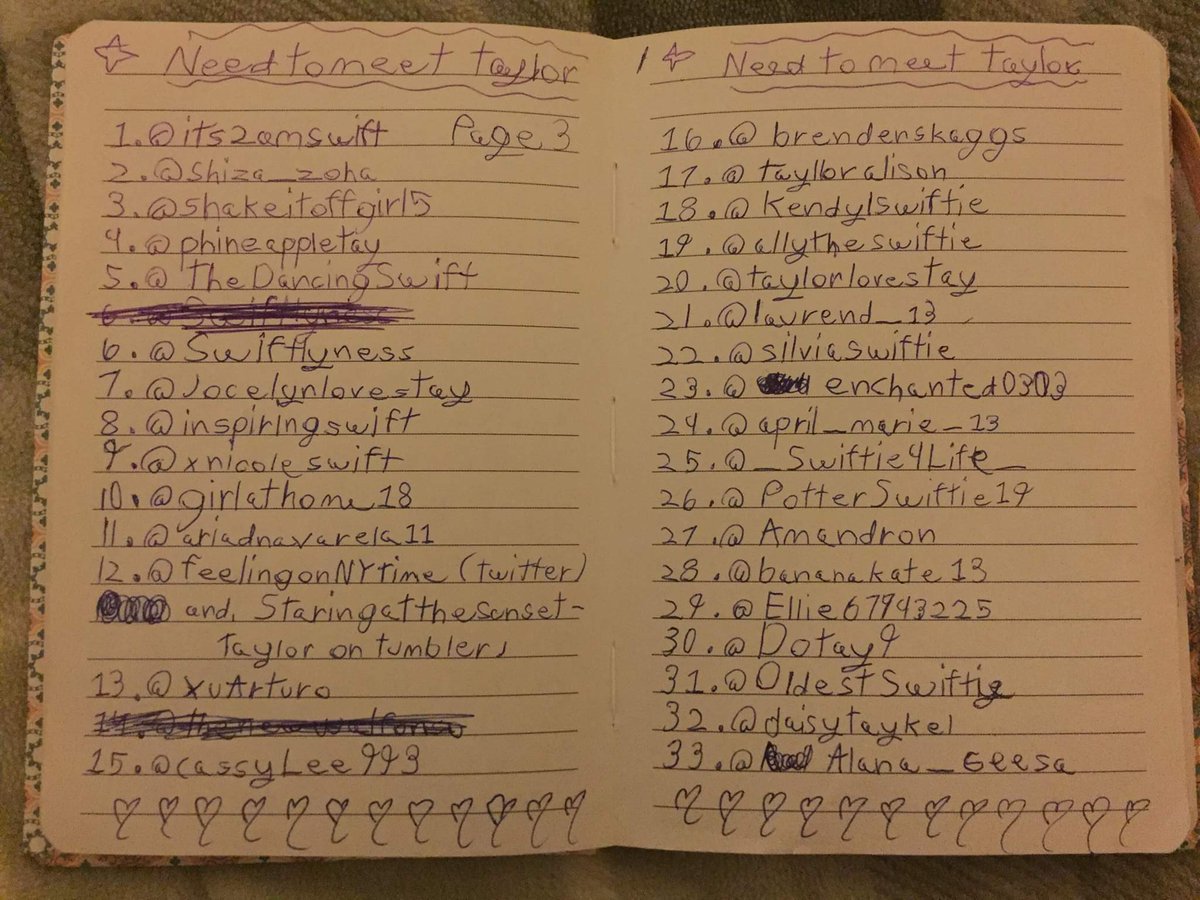 Need to meet taylor
1. @its2amswift Page 3
2. @Shiza_zoha
3. @shakeitoffgirl5
4. @phineappletay
5. @TheDancingSwift
6. @Swifftlyness
6. @Swifflyness
7. @Jocelynlovestay
8. @inspiringswift
9. @xnicoleswift
10. @girlathome18
11. @ariadnavarela11
12. @feelingonNYtime (twitter)
and, Staringatthesonset-
Taylor on tumblers
13. @XuArturo
15. @cassyLee993
Need to meet Taylor
16. @brenderskaggs
17. @taylloralison
18. @Kendylswiftie
19. @allytheswiftie
20. @taylorlovestay
21. @laurend_13
22. @silviaswiftie
23. @enchanted0303
24. @april_marie_13
25. @_Swiftie4Life_
26. @PotterSwiftie19
27. @Amandron
28. @bananakate13
29. @Ellie67943225
30. @Dotay9
31. @OldestSwiftie
32. @daisytaykel
33. @Alana_Geesa